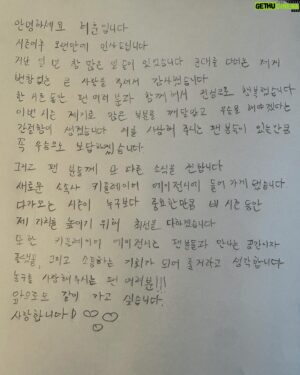 안녕하세요 허훈입니다
시즌이후 오랜만에 인사드립니다
지난 일 년 참 많은 일들이 있었습니다 군대를 다녀온 저게
변함없는 큰 사랑을 주셔서 감사했습니다
한 시즌 동안 팬 여러분과 함께해서 진심으로 행복했습니다
이번 시즌 계기로 많은 부분을 깨달았고 우승을 해야겠다는
간절함이 생겼습니다 저를 사랑해 주시는 팬분들이 있는만큼
꼭 우승으로 보답하겠습니다.
그리고 팬 분들께 또 다른 소식을 전합니다
새로운 소속사 키플레이어 에이전시에 들어가게 됐습니다
다가오는 시즌이 누구보다 중요한만큼 네 시즌 동안
제 가치를 높이기 위해 최선을 다하겠습니다
또한 키플레이어 에이전시는 팬분들과 만나는 공간이자
그리고 소통하는 기회가 되어 줄거라고 생각합니다
농구를 사랑해주시는 팬 여러분!!!
앞으로도 같이 가고 싶습니다.
사랑합니다!